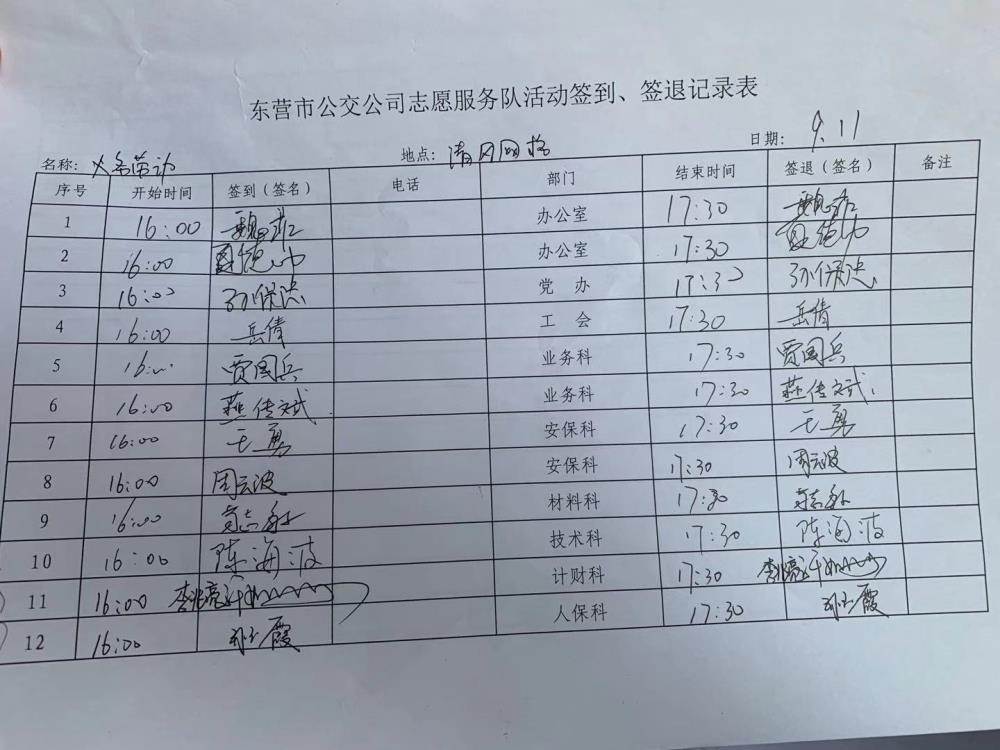 东营市公交公司志愿服务队活动签到、签退记录表
名称：义务劳动 地点：清风网格 日期：9.11
序号 开始时间 签到（签名） 电话 部门 结束时间 签退（签名） 备注
1 16:00 魏 办公室 17:30 魏
2 16:00 办公室 17:30
3 16:00 孙保忠 党 办 17:30 孙保忠
4 16:00 岳倩 工 会 17:30 岳倩
5 16:00 贾国兵 业务科 17:30 贾国兵
6 16:00 燕传文斌 业务科 17:30 燕传文斌
7 16:00 王勇 安保科 17:30 王勇
8 16:00 周云波 安保科 17:30 周云波
9 16:00 材料科 17:30
10 16:00 陈海波 技术科 17:30 陈海波
11 16:00 李兆亮 计财科 17:30 李兆亮
12 16:00 孙玉霞 人保科 17:30 孙玉霞